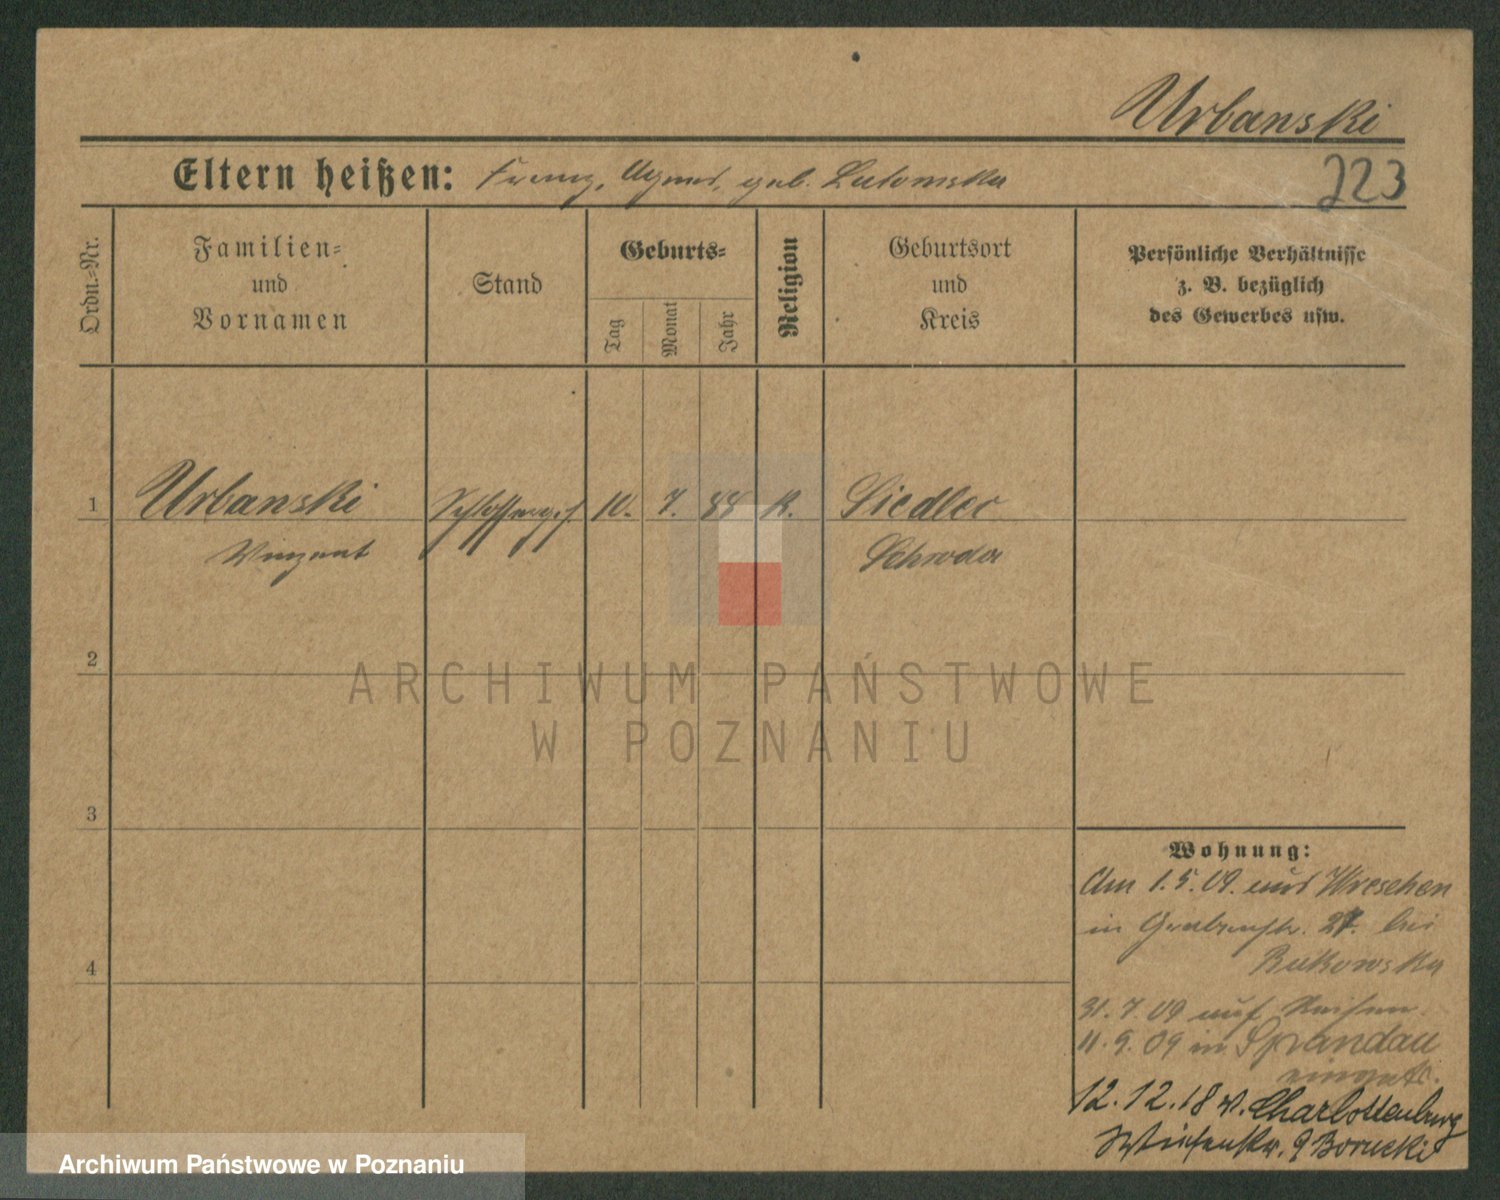 Urbanski
Eltern heißen: Franz, Agnes, geb. Lutomska
223
Ordn.-Nr.
Familien-
und
Vornamen
Stand
Geburts-
Tag
Monat
Jahr
Religion
Geburtsort
und
Kreis
Persönliche Verhältnisse
z. B. bezüglich
des Gewerbes usw.
1
Urbanski Schlosserges. 10. 7. 88 K. Siedlec
Vinzent Schroda
2
ARCHIWUM PAŃSTWOWE
W POZNANIU
3
Wohnung:
Am 1.5.09. aus Wreschen
in Grabenstr. 27. bei
Bukowska
31.7.09 auf Reisen.
11.9.09 in Spandau
12.12.18 v. Charlottenburg
Wiesenstr. 9 Borucki
4
Archiwum Państwowe w Poznaniu